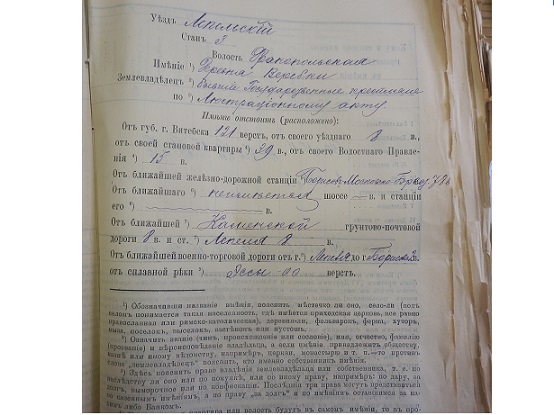 Уѣздъ Лепельскій
Станъ 3
Волость Франопольская
Имѣніе ¹) Деревня Веребки
Землевладѣлецъ ²) Бывшіе Государственные крестьяне
по ³) Люстраціонному акту
Имѣніе отстоитъ (расположено):
Отъ губ. г. Витебска 121 верст., отъ своего уѣзднаго 8 в.,
отъ своей становой квартиры ⁴) 39 в., отъ своего Волостнаго Правле-
нія ⁴) 15 в.
Отъ ближайшей желѣзно-дорожной станціи Борисовъ
Отъ ближайшаго шоссе в. и станціи
его в.
Отъ ближайшей Каменской грунтово-почтовой
дороги 8 в. и ст. Лепеля 8 в.
Отъ ближайшей военно-торговой дороги отъ г. Лепеля до г.
отъ сплавной рѣки Эссы верстъ.
¹) Обозначивъ названіе имѣнія, пояснить мѣстечко-ли оно, село-ли (подъ
селомъ понимается такая населенность, гдѣ имѣется приходская церковь, все равно
православная или римско-католическая), деревня-ли, фольваркъ, ферма, хуторъ,
мыза, поселокъ, выселокъ, застѣнокъ или пустошь.
²) Означить званіе (чинъ, происхожденіе или сословіе), имя, отчество, фамилію
(прозваніе) и вѣроисповѣданіе владѣльца, а если имѣніе принадлежитъ обществу,
казнѣ или иному вѣдомству, напримѣръ, церкви, монастырю и т. п.—то противъ
слова „землевладѣлецъ" пояснить, что именно собственникъ имѣнія.
³) Здѣсь пояснять право владѣнія землевладѣльца или собственника, т. е. по
наслѣдству ли оно или по покупкѣ, или по иному праву, напримѣръ: по дару, за
долги, выморочное или по конфискаціи. Послѣднія три права могутъ представиться
по казеннымъ имѣніямъ, а по праву „за долгъ" и по имѣніямъ
какимъ либо Банкомъ.
или волость будутъ въ самомъ имѣніи, то въ про-